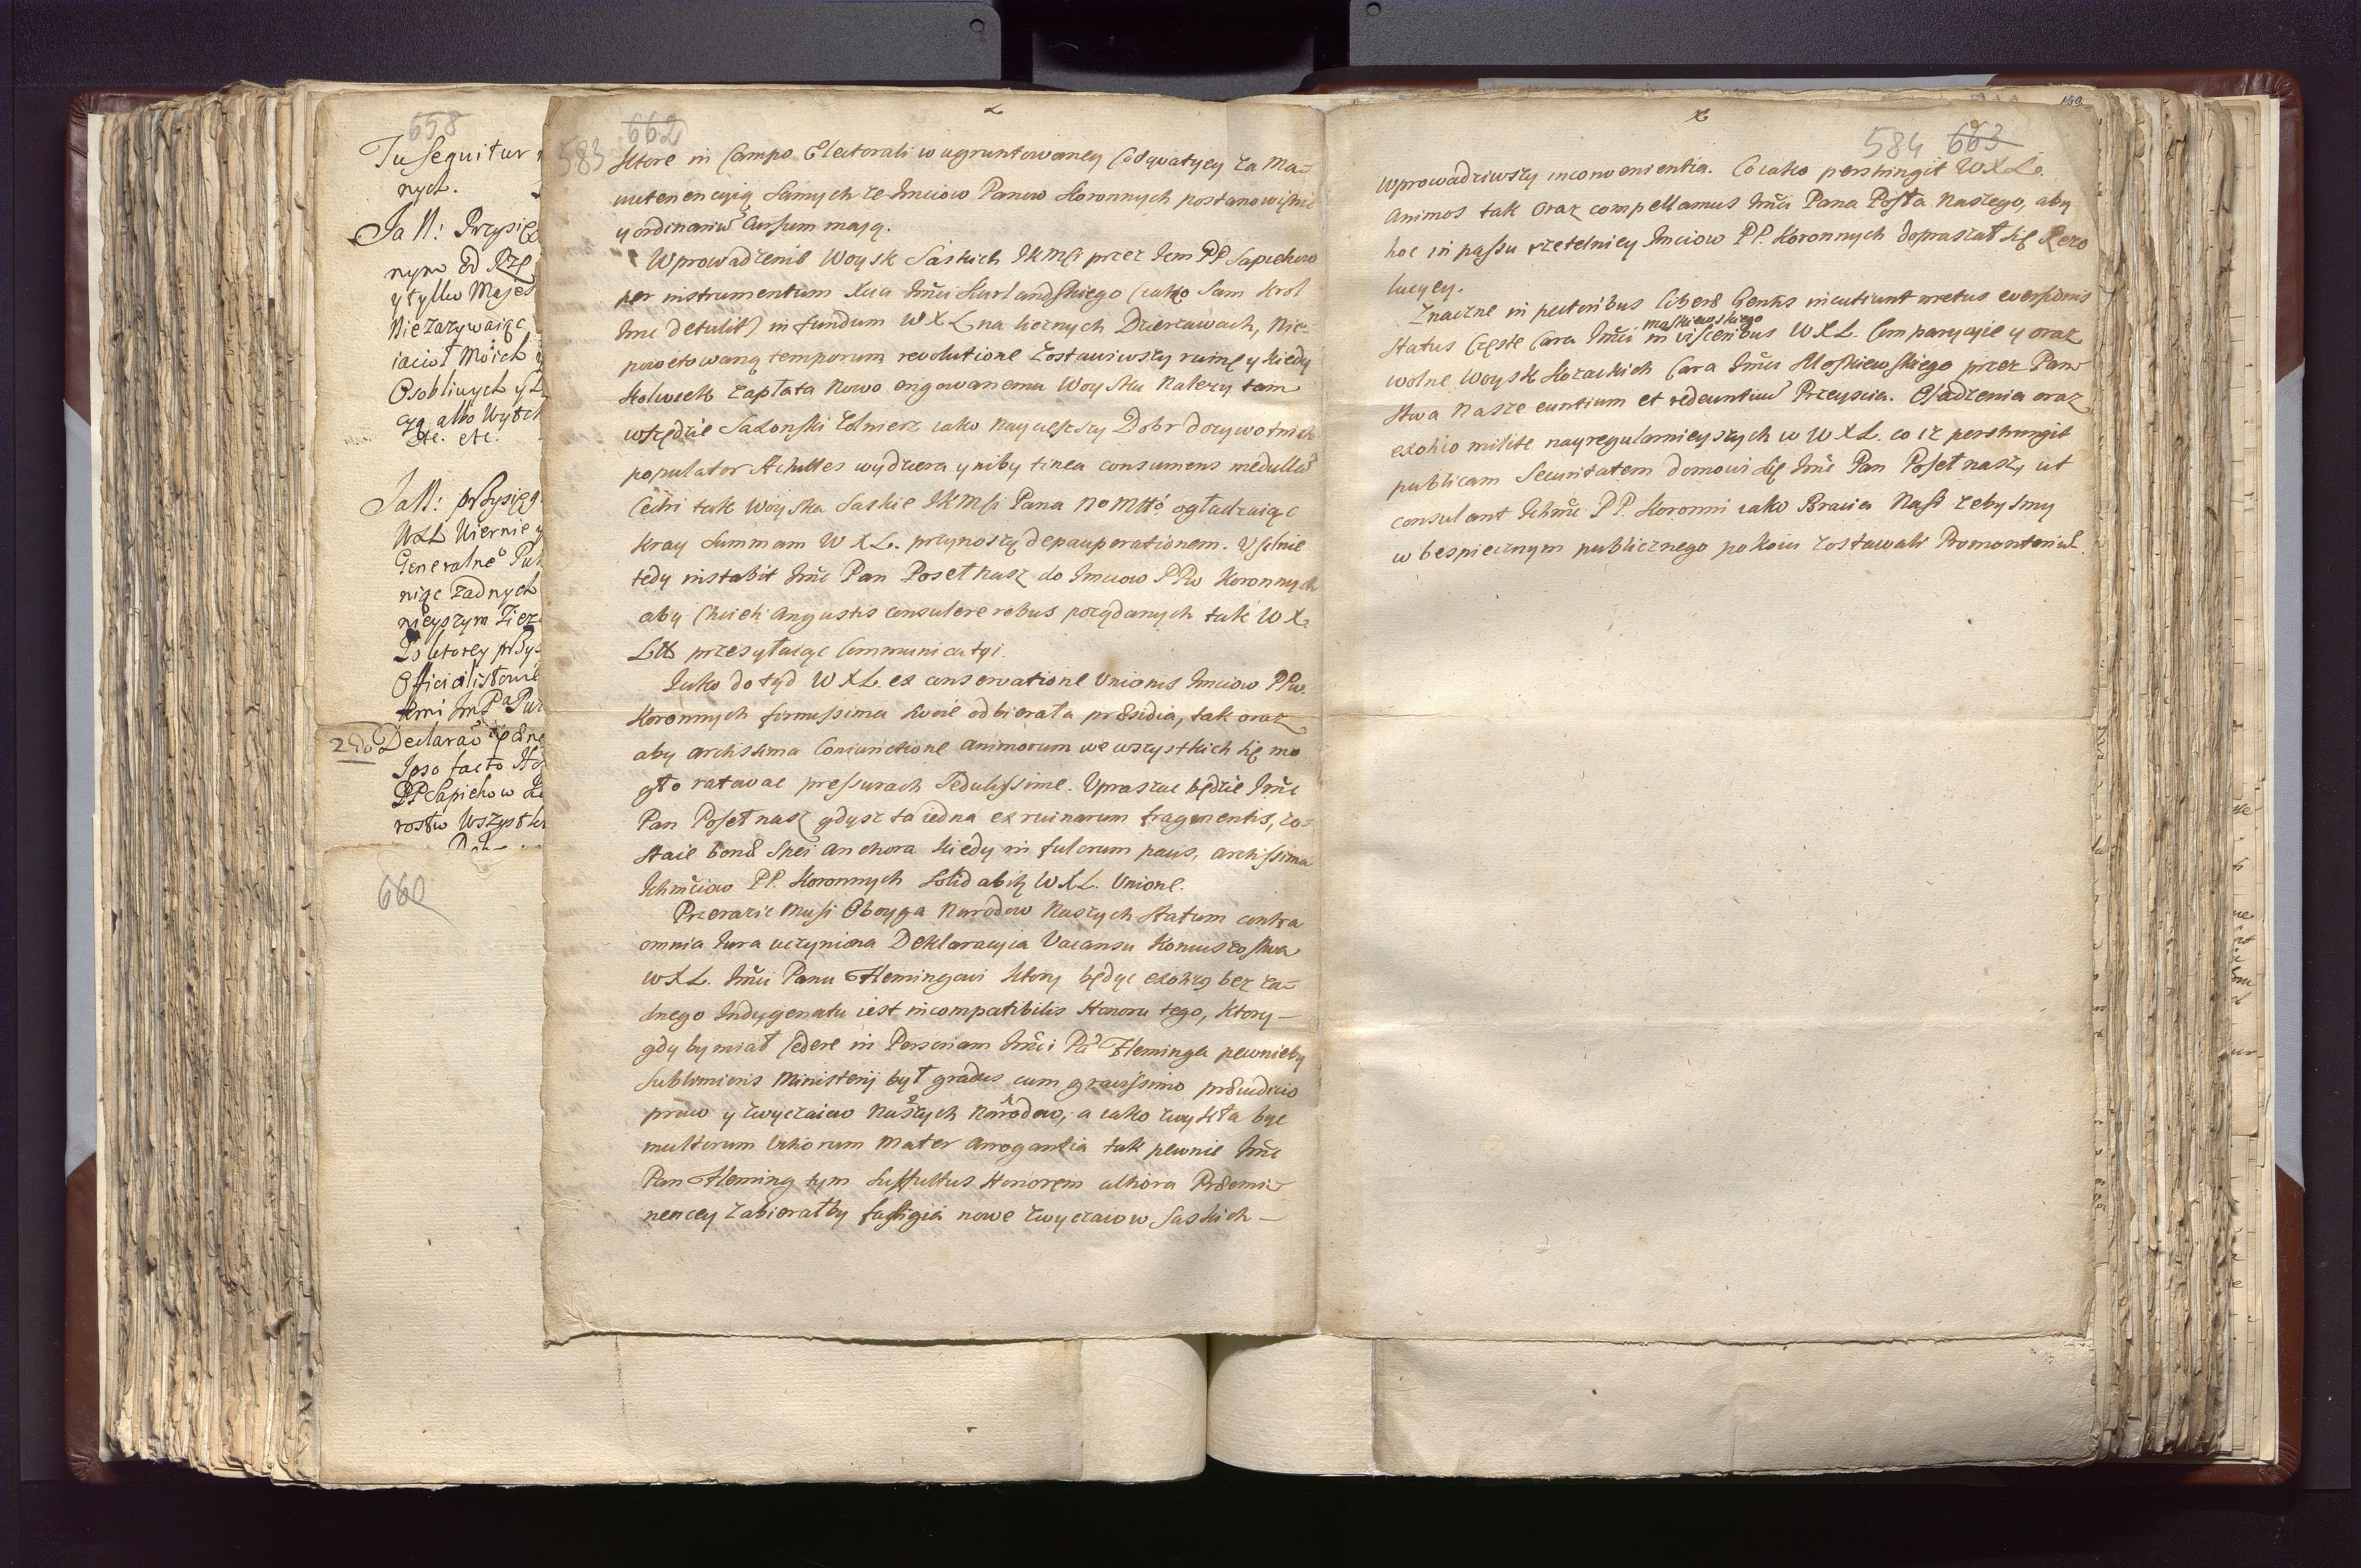 658
Tu sequitur
nych.
Ja N: Przysięg
nym od Rzp
y tylko Majes
Nie zazywaiąc
iacioł Moich
Osobliwych y
czą albo Wytch
etc. etc.
Ja N: przysięg
WXL Wiernie y
Generalne
niąc zadnych
nieyszym
Do ktorey przys
Officialistow
2do Declarac
Ipso facto
PP Sapiehow
rostw Wszystk
660
583 662
ktore in Campo Electorali w ugruntowaney Coæquatycy za Ma-
nutenencyią samych ze Imciow Panow Koronnych postanowiſmy
y ordinariū Cursum maią.
Wprowadzenie Woysk Saskich JKMſci przez Ichm PP Sapiehow
per instrumentum Xcia Jmći Kurlandſkiego (iako sam Krol
Jmc detulit) in fundum WXL na licznych Dzierzawach, Nie
powetowaną temporum revolutione zostawiwszy ruinę y kiedy
kolwiek zapłata nowo Woysku nalezy tam
wszędzie Saxonski zołnierz iako naycięszszy Dobr dozywotnich
populator Achilles wydziera y niby tinea consumens medullā
Cedri tak Woyska Saskie JKMſci Pana N Miłł: ogładzaiąc
kray summam WXL. przynoszą depauperationem. Uſilnie
tedy instabit Jmć Pan Poseł nasz do Jmciow PPw Koronnych
aby chcieli angustis consulere rebus poządanych tak WX.
Litt przesyłaiąc Communicatyi.
Jako dotąd WXL. ex conservatione Unionis Jmciow PPw.
Koronnych firmissima swoie odbierała præsidia, tak oraz
aby arctissima Coniunctione animorum we wszystkich się mo
gło ratowac pressurach sedulissime. Upraszac będzie Jmć
Pan Poſeł nasz gdysz ta iedna ex ruinarum fragmentis, zo-
staie bonæ Spei Anchora kiedy in fulcrum pacis, arctissima
Ichmciow PP. Koronnych solidabitę WXL. Unione.
Przerazic musi Oboyga Narodow Naszych statum contra
omnia Iura uczyniona Deklaracyia Vacansu Koniuszoſtwa
WXL. Jmći Panu Flemingowi ktory będąc exoticg bez za-
dnego Indygenatu iest incompatibilis Honoru tego, ktory –
gdy by miał cedere in Personam Jmći Pā Fleminga pewnieby
Sublimioris Ministerij był gradus cum gravissimo præiudicio
praw y zwyczaiow Naszych Narodow, a iako zwykła byc
multorum vitiorum Mater arrogantia tak pewnie Jmć
Pan Fleming tym suffultus Honorem ultiora Præemi-
nencey zabierałby faſtigia nowe zwyczaiow Saskich –
149
584 663
Wprowadziwszy inconvenientia. Co iako perstringit WXL.
Animos tak oraz compellamus Jmći Pana Poſła Naszego, aby
hoc in paſsu rzetelniey Jmciow PP. Koronnych dopraszał się Rezo
lucyey.
Znaczne in pectoribus liberæ Gentis incutiunt metus eversionis
status Częste Cara Jmći moskiewskiego in visceribus WXL. Comparycyie y oraz
wolne Woysk Kozackich Cara Jmći Moſkiewſkiego przez Pan
stwa Nasze euntium et redeuntiū Przeyscia. Osadzenia oraz
exotico milite nayregularnieyszych w WXL. co iz perstringit
publicam Securitatem domowi się Jmć Pan Poſeł nasz, ut
consulant Ichmć PP. Koronni iako Bracia Naſi zebysmy
w bespiecznym publicznego pokoiu zostawali Promontoriū.